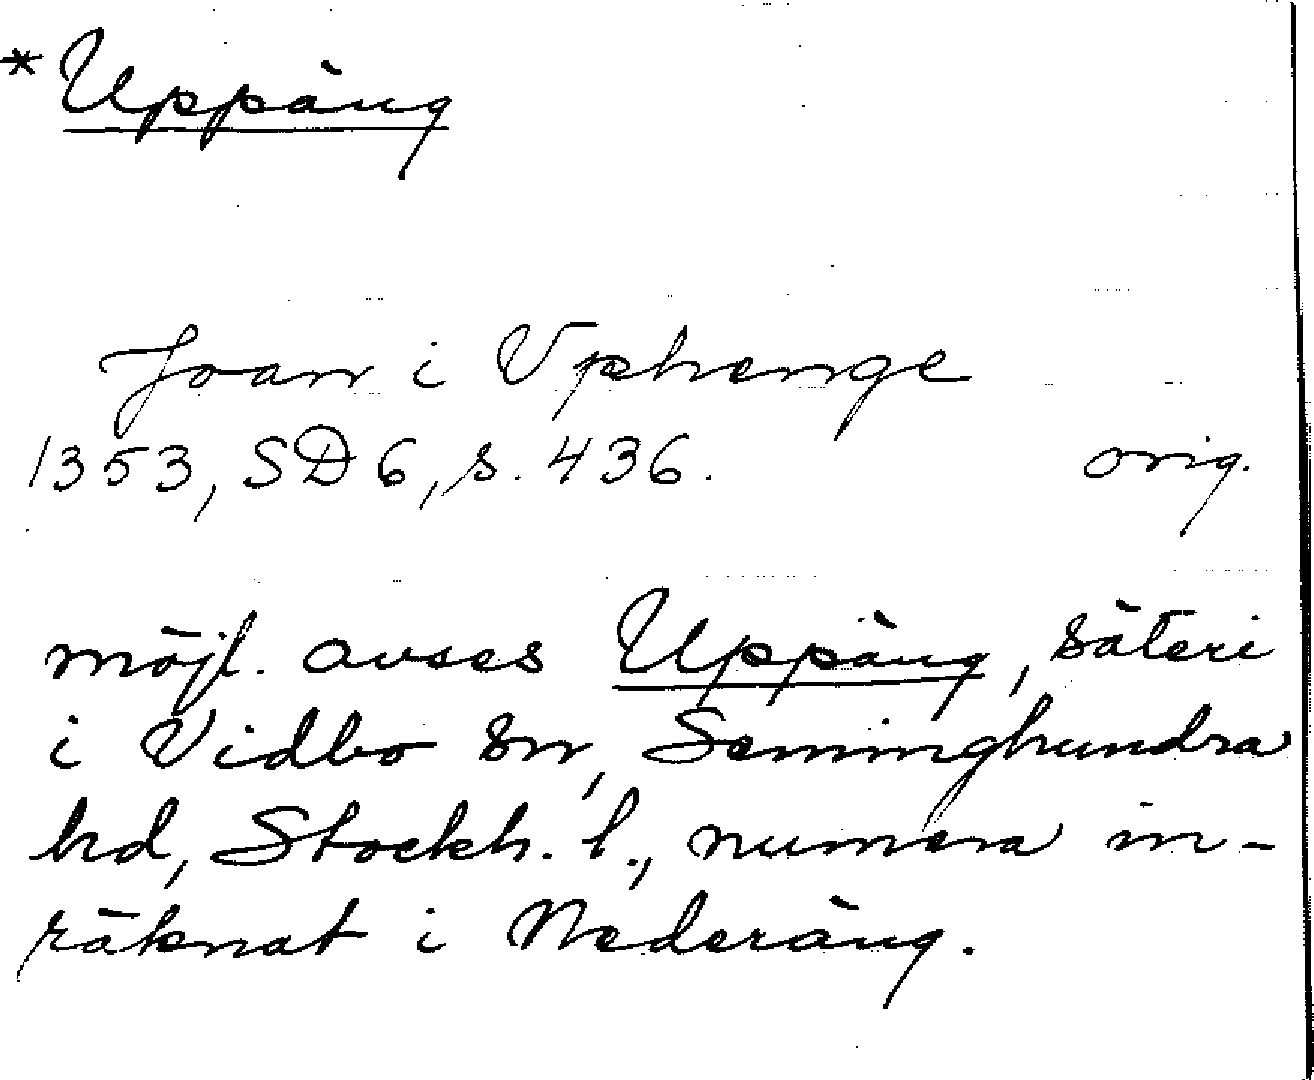 *Uppäng
Joan i Vphænge
1353, SD 6, s. 436. orig.
möjl. avses Uppäng, säteri
i Vidbo sn, Seminghundra
hd, Stockh. l., numera in-
räknat i Nederäng.